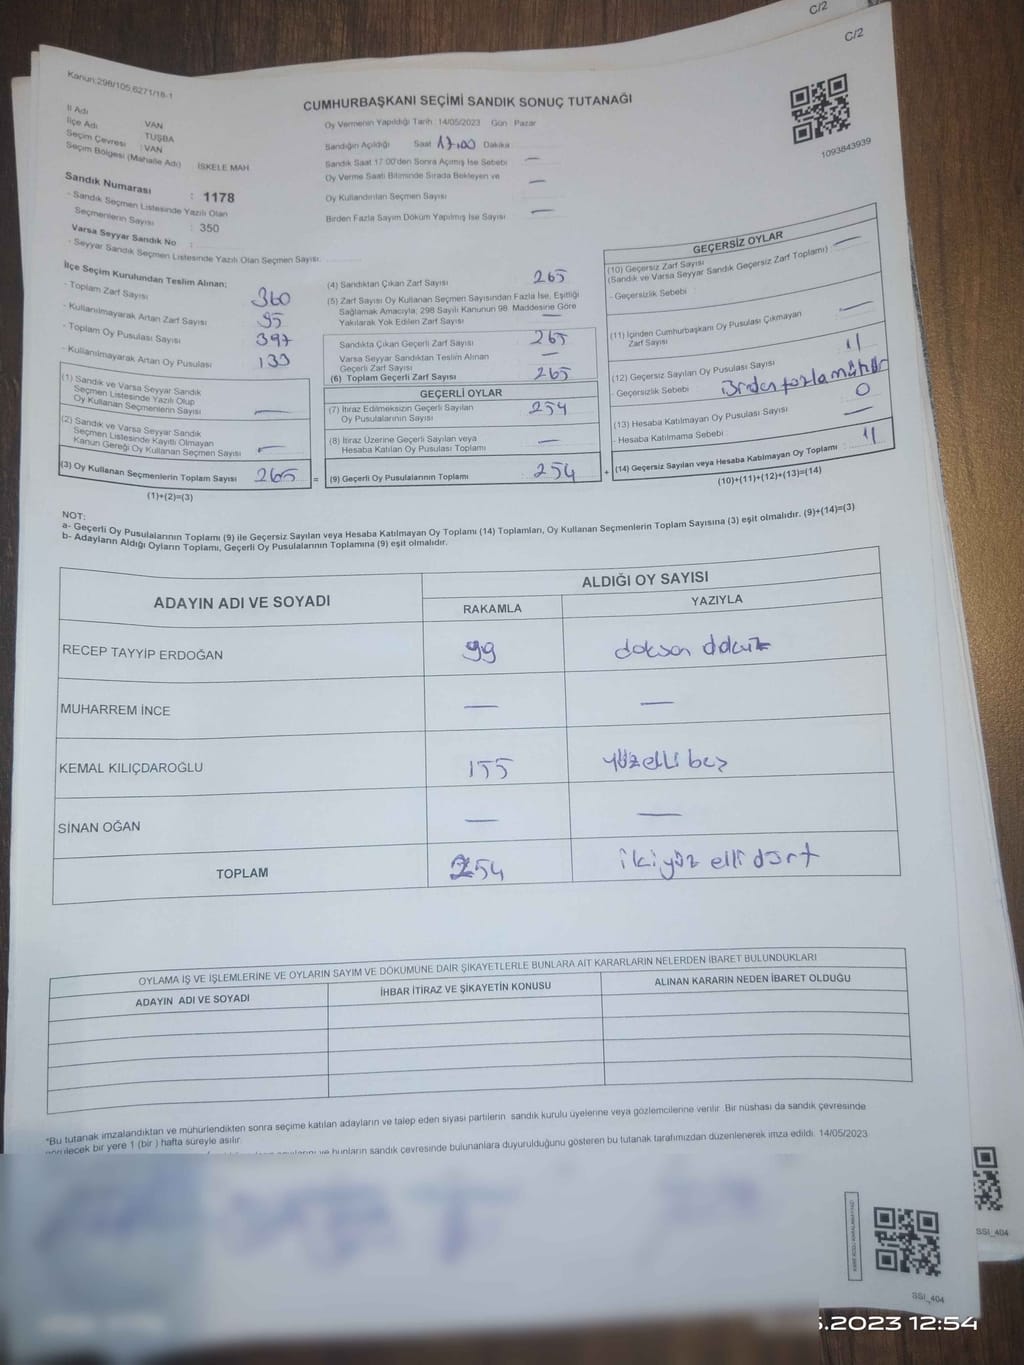 C/2
C/2
Kanun:298/105,6271/18-1
CUMHURBAŞKANI SEÇİMİ SANDIK SONUÇ TUTANAĞI
1093843939
İl Adı VAN
İlçe Adı TUŞBA
Seçim Çevresi : VAN
Seçim Bölgesi (Mahalle Adı) İSKELE MAH
Sandık Numarası : 1178
- Sandık Seçmen Listesinde Yazılı Olan
Seçmenlerin Sayısı : 350
Varsa Seyyar Sandık No :
- Seyyar Sandık Seçmen Listesinde Yazılı Olan Seçmen Sayısı:
Oy Vermenin Yapıldığı Tarih :14/05/2023 Gün Pazar
Sandığın Açıldığı Saat 17:00 Dakika
Sandık Saat 17:00'den Sonra Açımış İse Sebebi —
Oy Verme Saati Bitiminde Sırada Bekleyen ve
Oy Kullandırılan Seçmen Sayısı —
Birden Fazla Sayım Döküm Yapılmış İse Sayısı —
İlçe Seçim Kurulundan Teslim Alınan;
- Toplam Zarf Sayısı 360
- Kullanılmayarak Artan Zarf Sayısı 95
- Toplam Oy Pusulası Sayısı 397
- Kullanılmayarak Artan Oy Pusulası 133
(1) Sandık ve Varsa Seyyar Sandık
Seçmen Listesinde Yazılı Olup
Oy Kullanan Seçmenlerin Sayısı —
(2) Sandık ve Varsa Seyyar Sandık
Seçmen Listesinde Kayıtlı Olmayan
Kanun Gereği Oy Kullanan Seçmen Sayısı —
(3) Oy Kullanan Seçmenlerin Toplam Sayısı 265 =
(1)+(2)=(3)
(4) Sandıktan Çıkan Zarf Sayısı 265
(5) Zarf Sayısı Oy Kullanan Seçmen Sayısından Fazla İse, Eşitliği
Sağlamak Amacıyla; 298 Sayılı Kanunun 98. Maddesine Göre
Yakılarak Yok Edilen Zarf Sayısı —
Sandıkta Çıkan Geçerli Zarf Sayısı 265
Varsa Seyyar Sandıktan Teslim Alınan
Geçerli Zarf Sayısı —
(6) Toplam Geçerli Zarf Sayısı 265
GEÇERLİ OYLAR
(7) İtiraz Edilmeksizin Geçerli Sayılan
Oy Pusulasının Sayısı 254
(8) İtiraz Üzerine Geçerli Sayılan veya
Hesaba Katılan Oy Pusulası Toplamı —
(9) Geçerli Oy Pusulalarının Toplamı 254 +
GEÇERSİZ OYLAR
(10) Geçersiz Zarf Sayısı —
(Sandık ve Varsa Seyyar Sandık Geçersiz Zarf Toplamı)
- Geçersizlik Sebebi
(11) İçinden Cumhurbaşkanı Oy Pusulası Çıkmayan
Zarf Sayısı —
(12) Geçersiz Sayılan Oy Pusulası Sayısı 11
- Geçersizlik Sebebi Birden fazla mühür
(13) Hesaba Katılmayan Oy Pusulası Sayısı 0
- Hesaba Katılmama Sebebi —
(14) Geçersiz Sayılan veya Hesaba Katılmayan Oy Toplamı 11
(10)+(11)+(12)+(13)=(14)
NOT:
a- Geçerli Oy Pusulalarının Toplamı (9) ile Geçersiz Sayılan veya Hesaba Katılmayan Oy Toplamı (14) Toplamları, Oy Kullanan Seçmenlerin Toplam Sayısına (3) eşit olmalıdır. (9)+(14)=(3)
b- Adayların Aldığı Oyların Toplamı, Geçerli Oy Pusulalarının Toplamına (9) eşit olmalıdır.
ADAYIN ADI VE SOYADI
ALDIĞI OY SAYISI
RAKAMLA YAZIYLA
RECEP TAYYİP ERDOĞAN 99 doksan dokuz
MUHARREM İNCE — —
KEMAL KILIÇDAROĞLU 155 yüzelli beş
SİNAN OĞAN — —
TOPLAM 254 ikiyüz elli dört
OYLAMA İŞ VE İŞLEMLERİNE VE OYLARIN SAYIM VE DÖKÜMÜNE DAİR ŞİKAYETLERLE BUNLARA AİT KARARLARIN NELERDEN İBARET BULUNDUKLARI
ADAYIN ADI VE SOYADI İHBAR İTİRAZ VE ŞİKAYETİN KONUSU ALINAN KARARIN NEDEN İBARET OLDUĞU
*Bu tutanak imzalandıktan ve mühürlendikten sonra seçime katılan adayların ve talep eden siyasi partilerin sandık kurulu üyelerine veya gözlemcilerine verilir. Bir nüshası da sandık çevresinde
görülecek bir yere 1 (bir ) hafta süreyle asılır.
ve bunların sandık çevresinde bulunanlara duyurulduğunu gösteren bu tutanak tarafımızdan düzenlenerek imza edildi. 14/05/2023
SSI_404
SSI_404
.2023 12:54